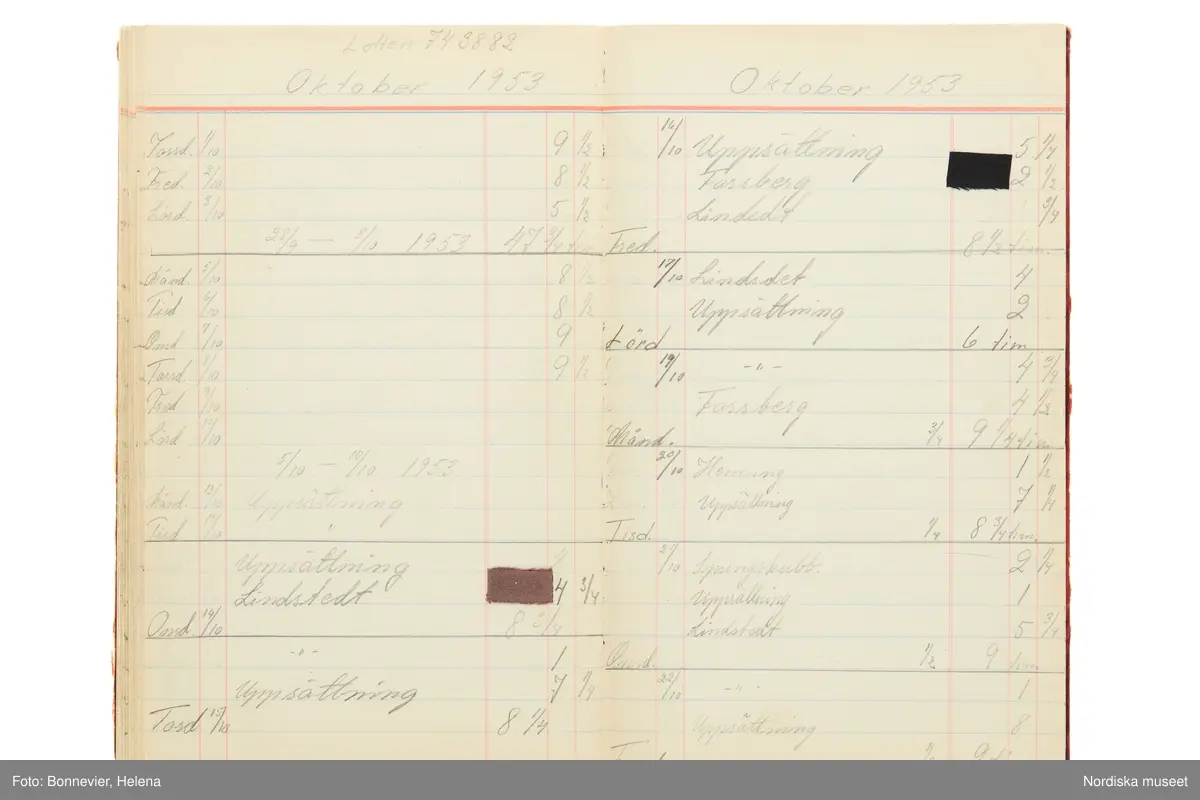 Lotten 743882
Oktober 1953
Torsd. 1/10 9 1/2
Fred. 2/10 8 1/2
Lörd. 3/10 5 1/2
28/9 — 3/10 1953 47 3/4 tim
Månd. 5/10 8 1/2
Tisd 6/10 8 1/2
Onsd 7/10 9
Torsd. 8/10 9 1/2
Fred 9/10
Lörd 10/10
5/10 — 10/10 1953
Månd. 12/10 Uppsättning
Tisd 13/10 "
Uppsättning
Lindstedt 4 3/4
Onsd 14/10 8 3/4
-"- 1
Uppsättning 7 1/4
Torsd 15/10 8 1/4
Oktober 1953
16/10 Uppsättning 5 1/4
Forsberg 2 1/2
Lindsdt 3/4
Fred. 8 1/2 tim.
17/10 Lindsdet 4
Uppsättning 2
Lörd 6 tim
19/10 -"- 4 3/4
Forsberg 4 1/2
Månd. 3/4 9 1/4 tim
20/10 1 1/2
Uppsättning 7 1/4
Tisd. 1/4 8 3/4 tim.
21/10 2 1/4
Uppsättning 1
Lindstedt 5 3/4
Onsd. 1/2 9 tim
22/10 -"- 1
Uppsättning 8
Foto: Bonnevier, Helena
Nordiska museet